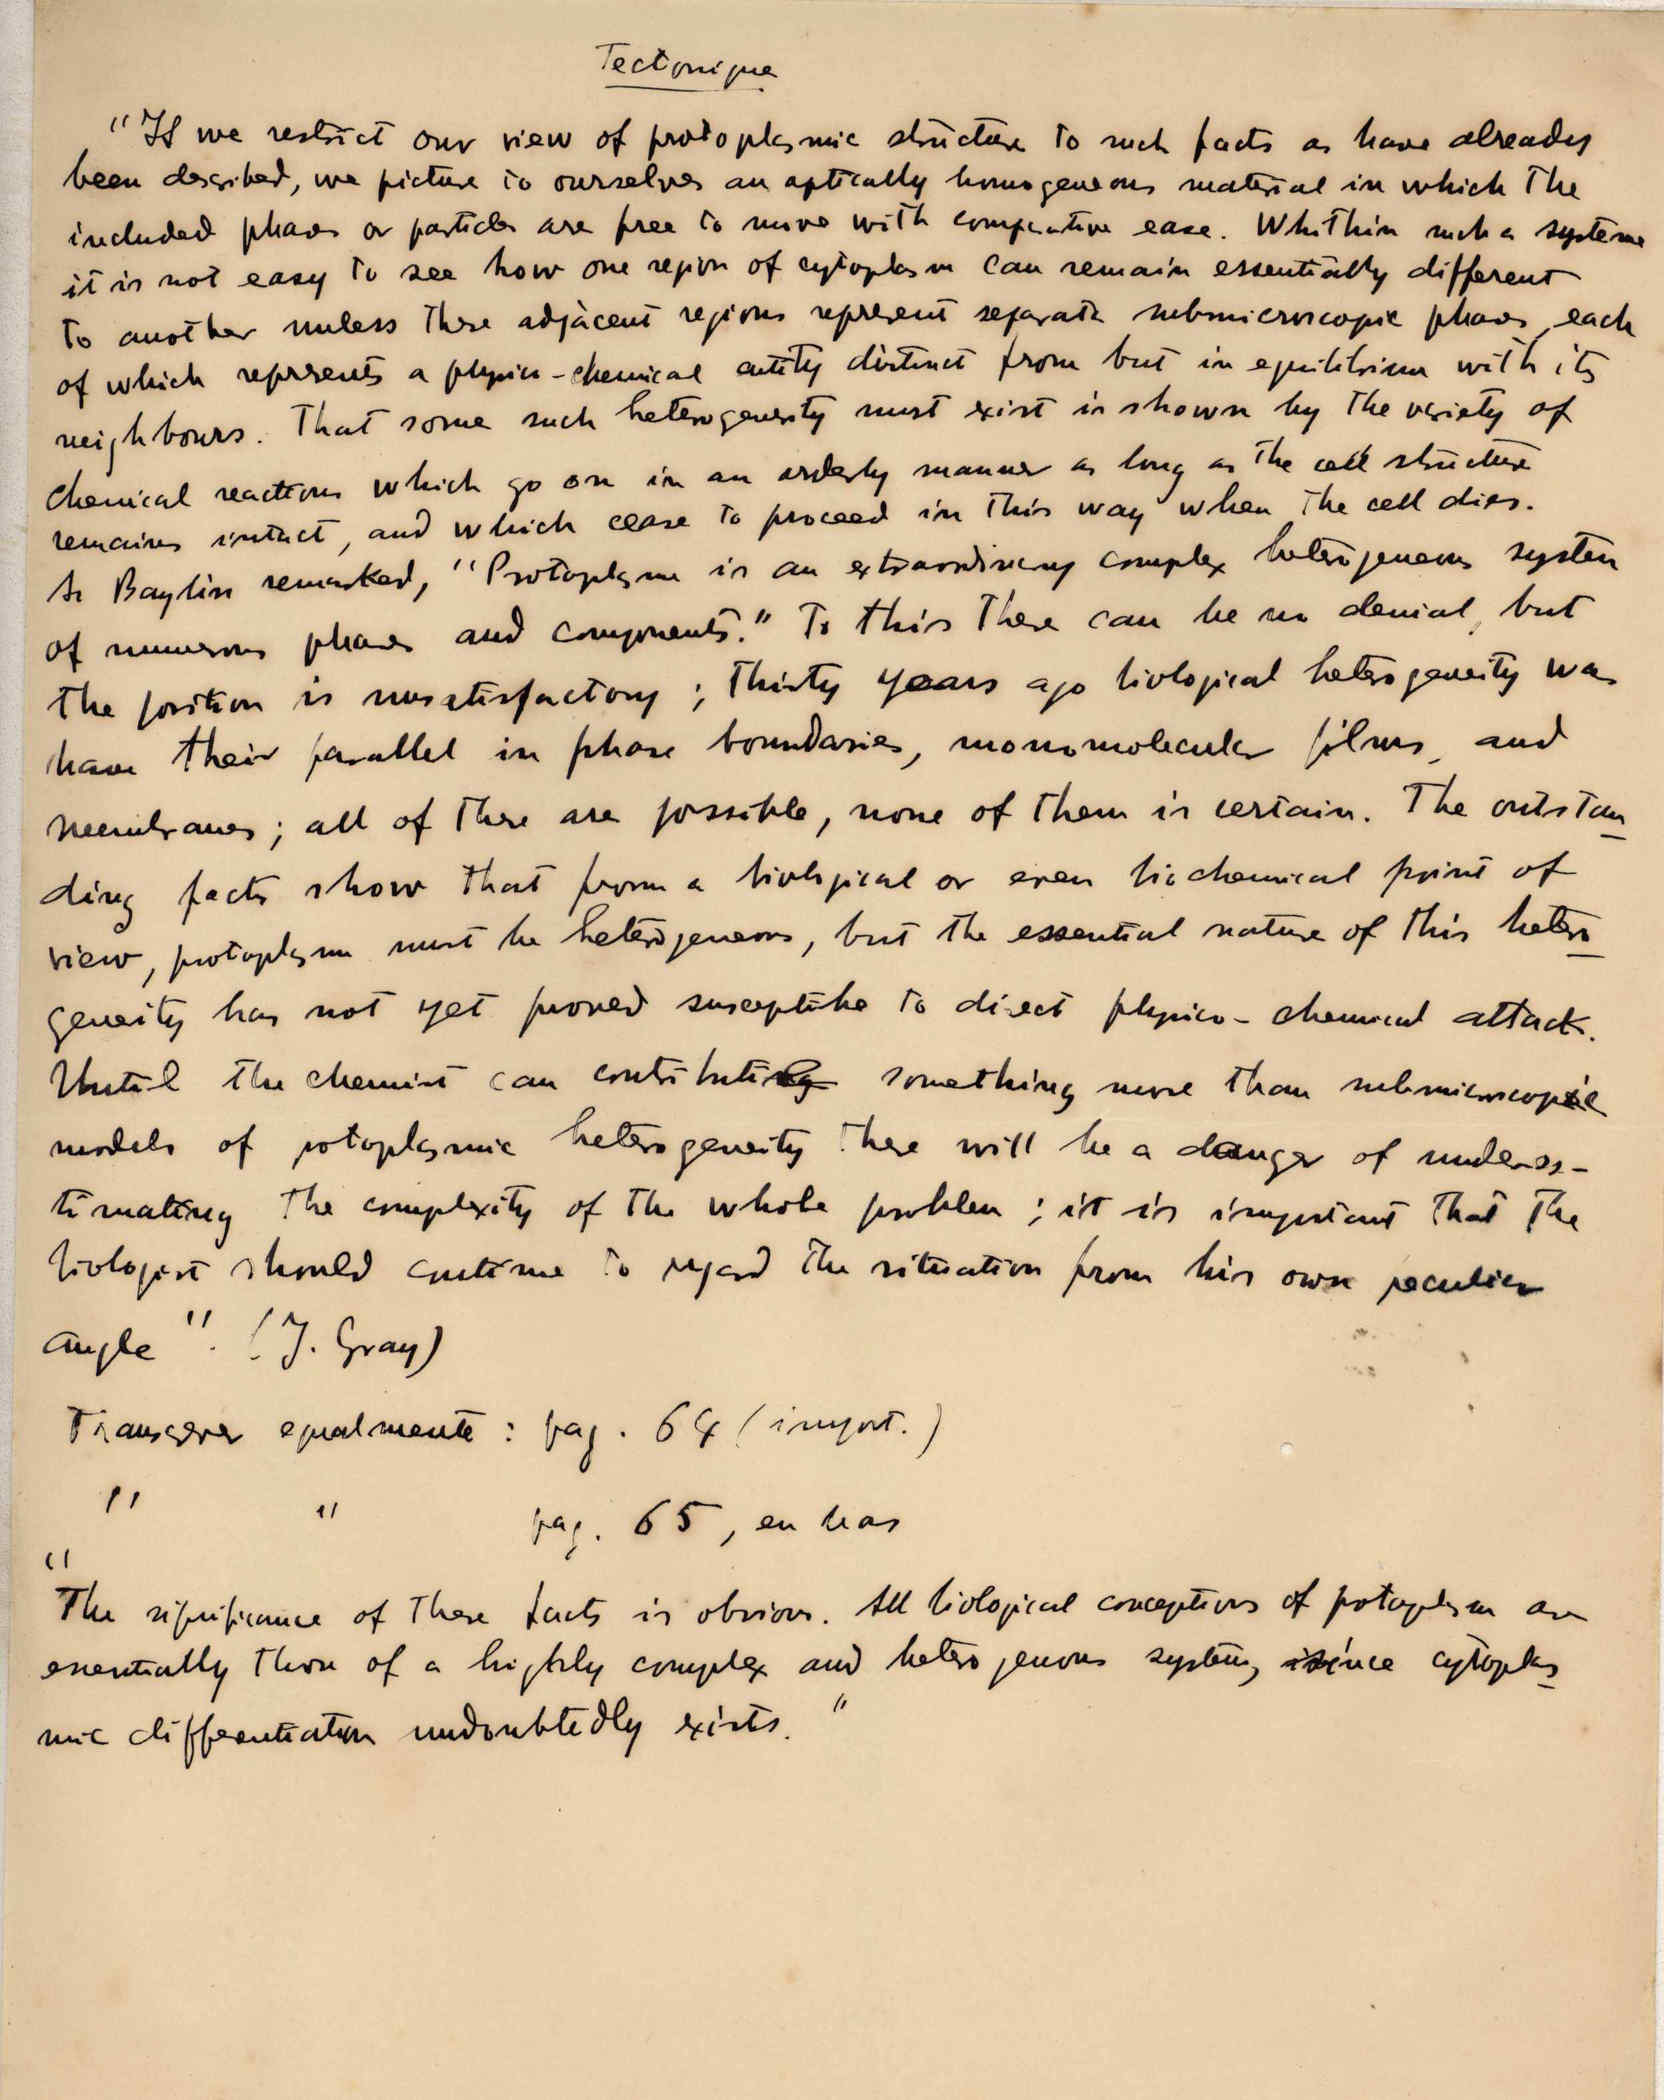 Tectonique
"If we restrict our view of protoplasmic structure to such facts as have already
been described, we picture to ourselves an optically homogeneous material in which the
included phases or particles are free to move with comparative ease. Whithin such a systeme
it is not easy to see how one region of cytoplasm can remain essentially different
to another unless these adjacent regions represent separate submicroscopic phases, each
of which represents a physico-chemical entity distinct from but in equilibrium with its
neighbours. That some such heterogeneity must exist is shown by the variety of
chemical reactions which go on in an orderly manner as long as the cell structure
remains intact, and which cease to proceed in this way when the cell dies.
As Bayliss remarked, "Protoplasm is an extraordinary complex heterogeneous system
of numerous phases and components." To this there can be no denial, but
the position is unsatisfactory; thirty years ago biological heterogeneity was
have their parallel in phase boundaries, monomolecular films, and
membranes; all of these are possible, none of them is certain. The outstan
ding facts show that from a biological or even biochemical point of
view, protoplasm must be heterogeneous, but the essential nature of this hetero
geneity has not yet proved susceptible to direct physico-chemical attack.
Until the chemist can contribute something more than submicroscopic
models of protoplasmic heterogeneity there will be a danger of underes-
timating the complexity of the whole problem; it is important that the
biologist should continue to regard the situation from his own peculiar
angle". (J. Gray)
Transcrever egualmente: pag. 64 (import.)
" " pag. 65, en bas
"The significance of these facts is obvious. All biological conceptions of protoplasm are
essentially those of a highly complex and heterogenous system, since cytoplas
mic differentiation undoubtedly exists."